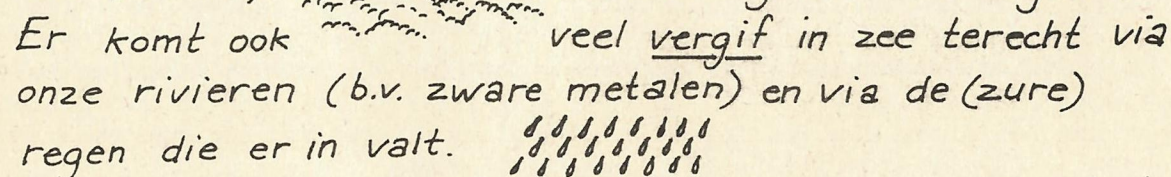 Er komt ook veel vergif in zee terecht via
onze rivieren (b.v. zware metalen) en via de (zure)
regen die er in valt.